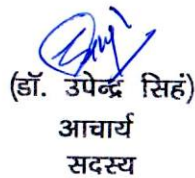 (डॉ. उपेन्द्र सिहं)
आचार्य
सदस्य